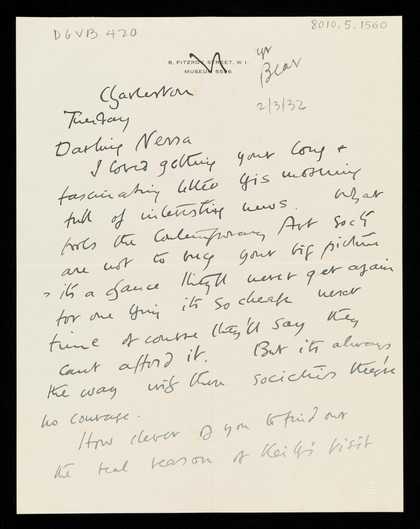 DGVB 420
8010.5.1560
8, FITZROY STREET, W.1.
MUSEUM 8596.
yr
Bear
Charleston
2/3/32
Tuesday
Darling Nessa
I loved getting your long &
fascinating letter this morning
full of interesting news. What
fools the Contemporary Art Socty
are not to buy your big picture
it's a chance they'll never get again
for one thing its so cheap next
time of course they'll say they
cant afford it. But its always
the way with these societies they've
no courage.
How clever of you to find out
the real reason of Keith's visit